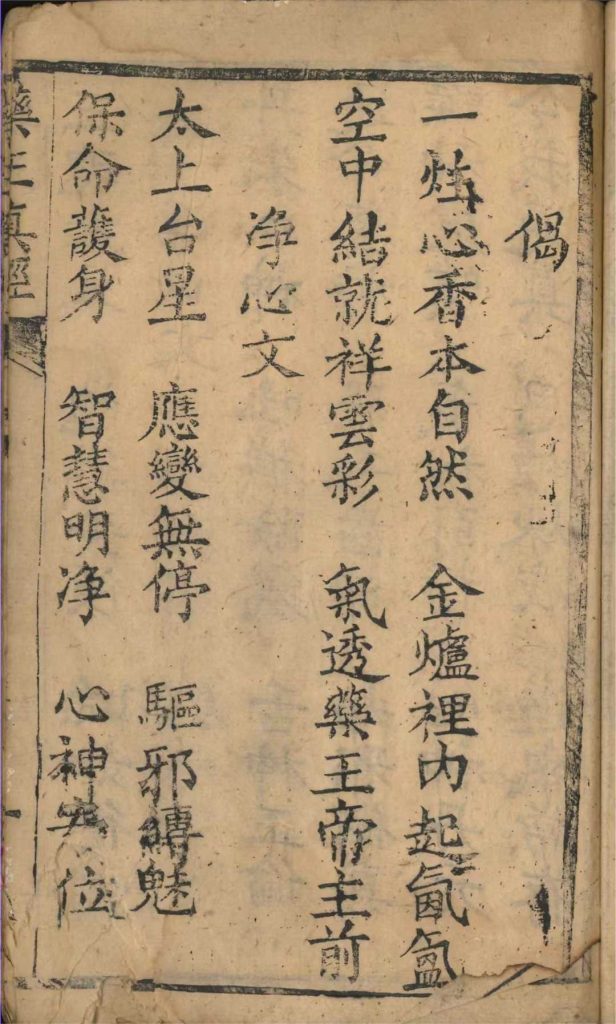 偈
一炷心香本自然 金爐裡内起氤氳
空中結就祥雲彩 氣透藥王帝主前
净心文
太上台星 應變無停 驅邪縛魅
保命護身 智慧明净 心神安位
藥王真經